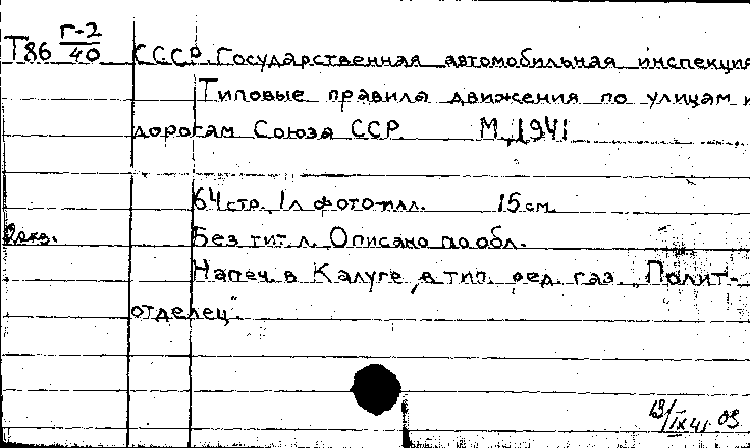 Т86 Г-2/40 С.С.С.Р. Государственная автомобильная инспекция
Типовые правила движения по улицам и
дорогам Союза ССР. М., 1941
64 стр., 1 л фото-пл. 15 см.
2 экз. Без тит. л. Описано по обл.
Напеч. в Калуге, в тип. ред. газ. „Полит-
отделец“.
/IX 41